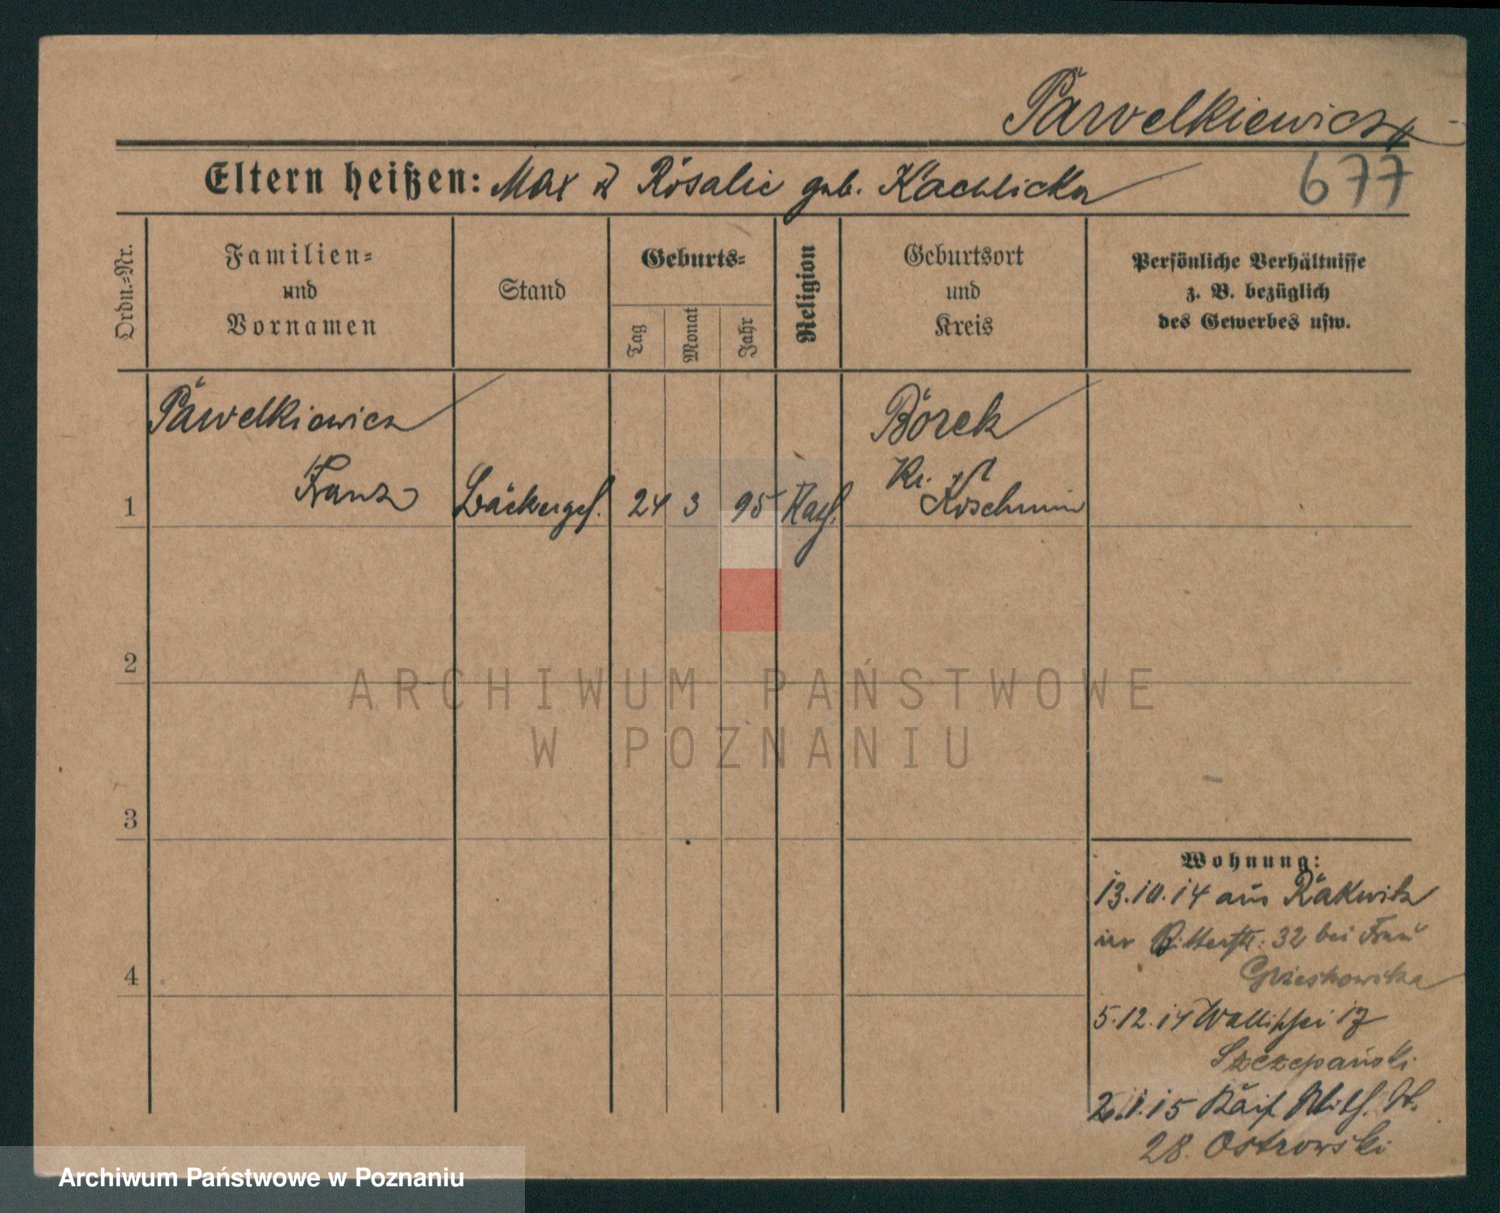 Pawelkiewicz
Eltern heißen: Max & Rosalie geb. Kachlicka
677
Ordn.-Nr.
Familien-
und
Vornamen
Stand
Geburts-
Tag
Monat
Jahr
Religion
Geburtsort
und
Kreis
Persönliche Verhältnisse
z. B. bezüglich
des Gewerbes usw.
Pawelkiewicz
Franz
1
Bäckerges.
24
3
95
Kath.
Borek
Kr.
Koschmin
2
ARCHIWUM PAŃSTWOWE
W POZNANIU
3
4
Wohnung:
13.10.14 aus Rakwitz
Ritterstr. 32 bei Frau
Grzeskowska
5.12.14 Wallischei 17
Szczepański
28. Ostrowski
Archiwum Państwowe w Poznaniu